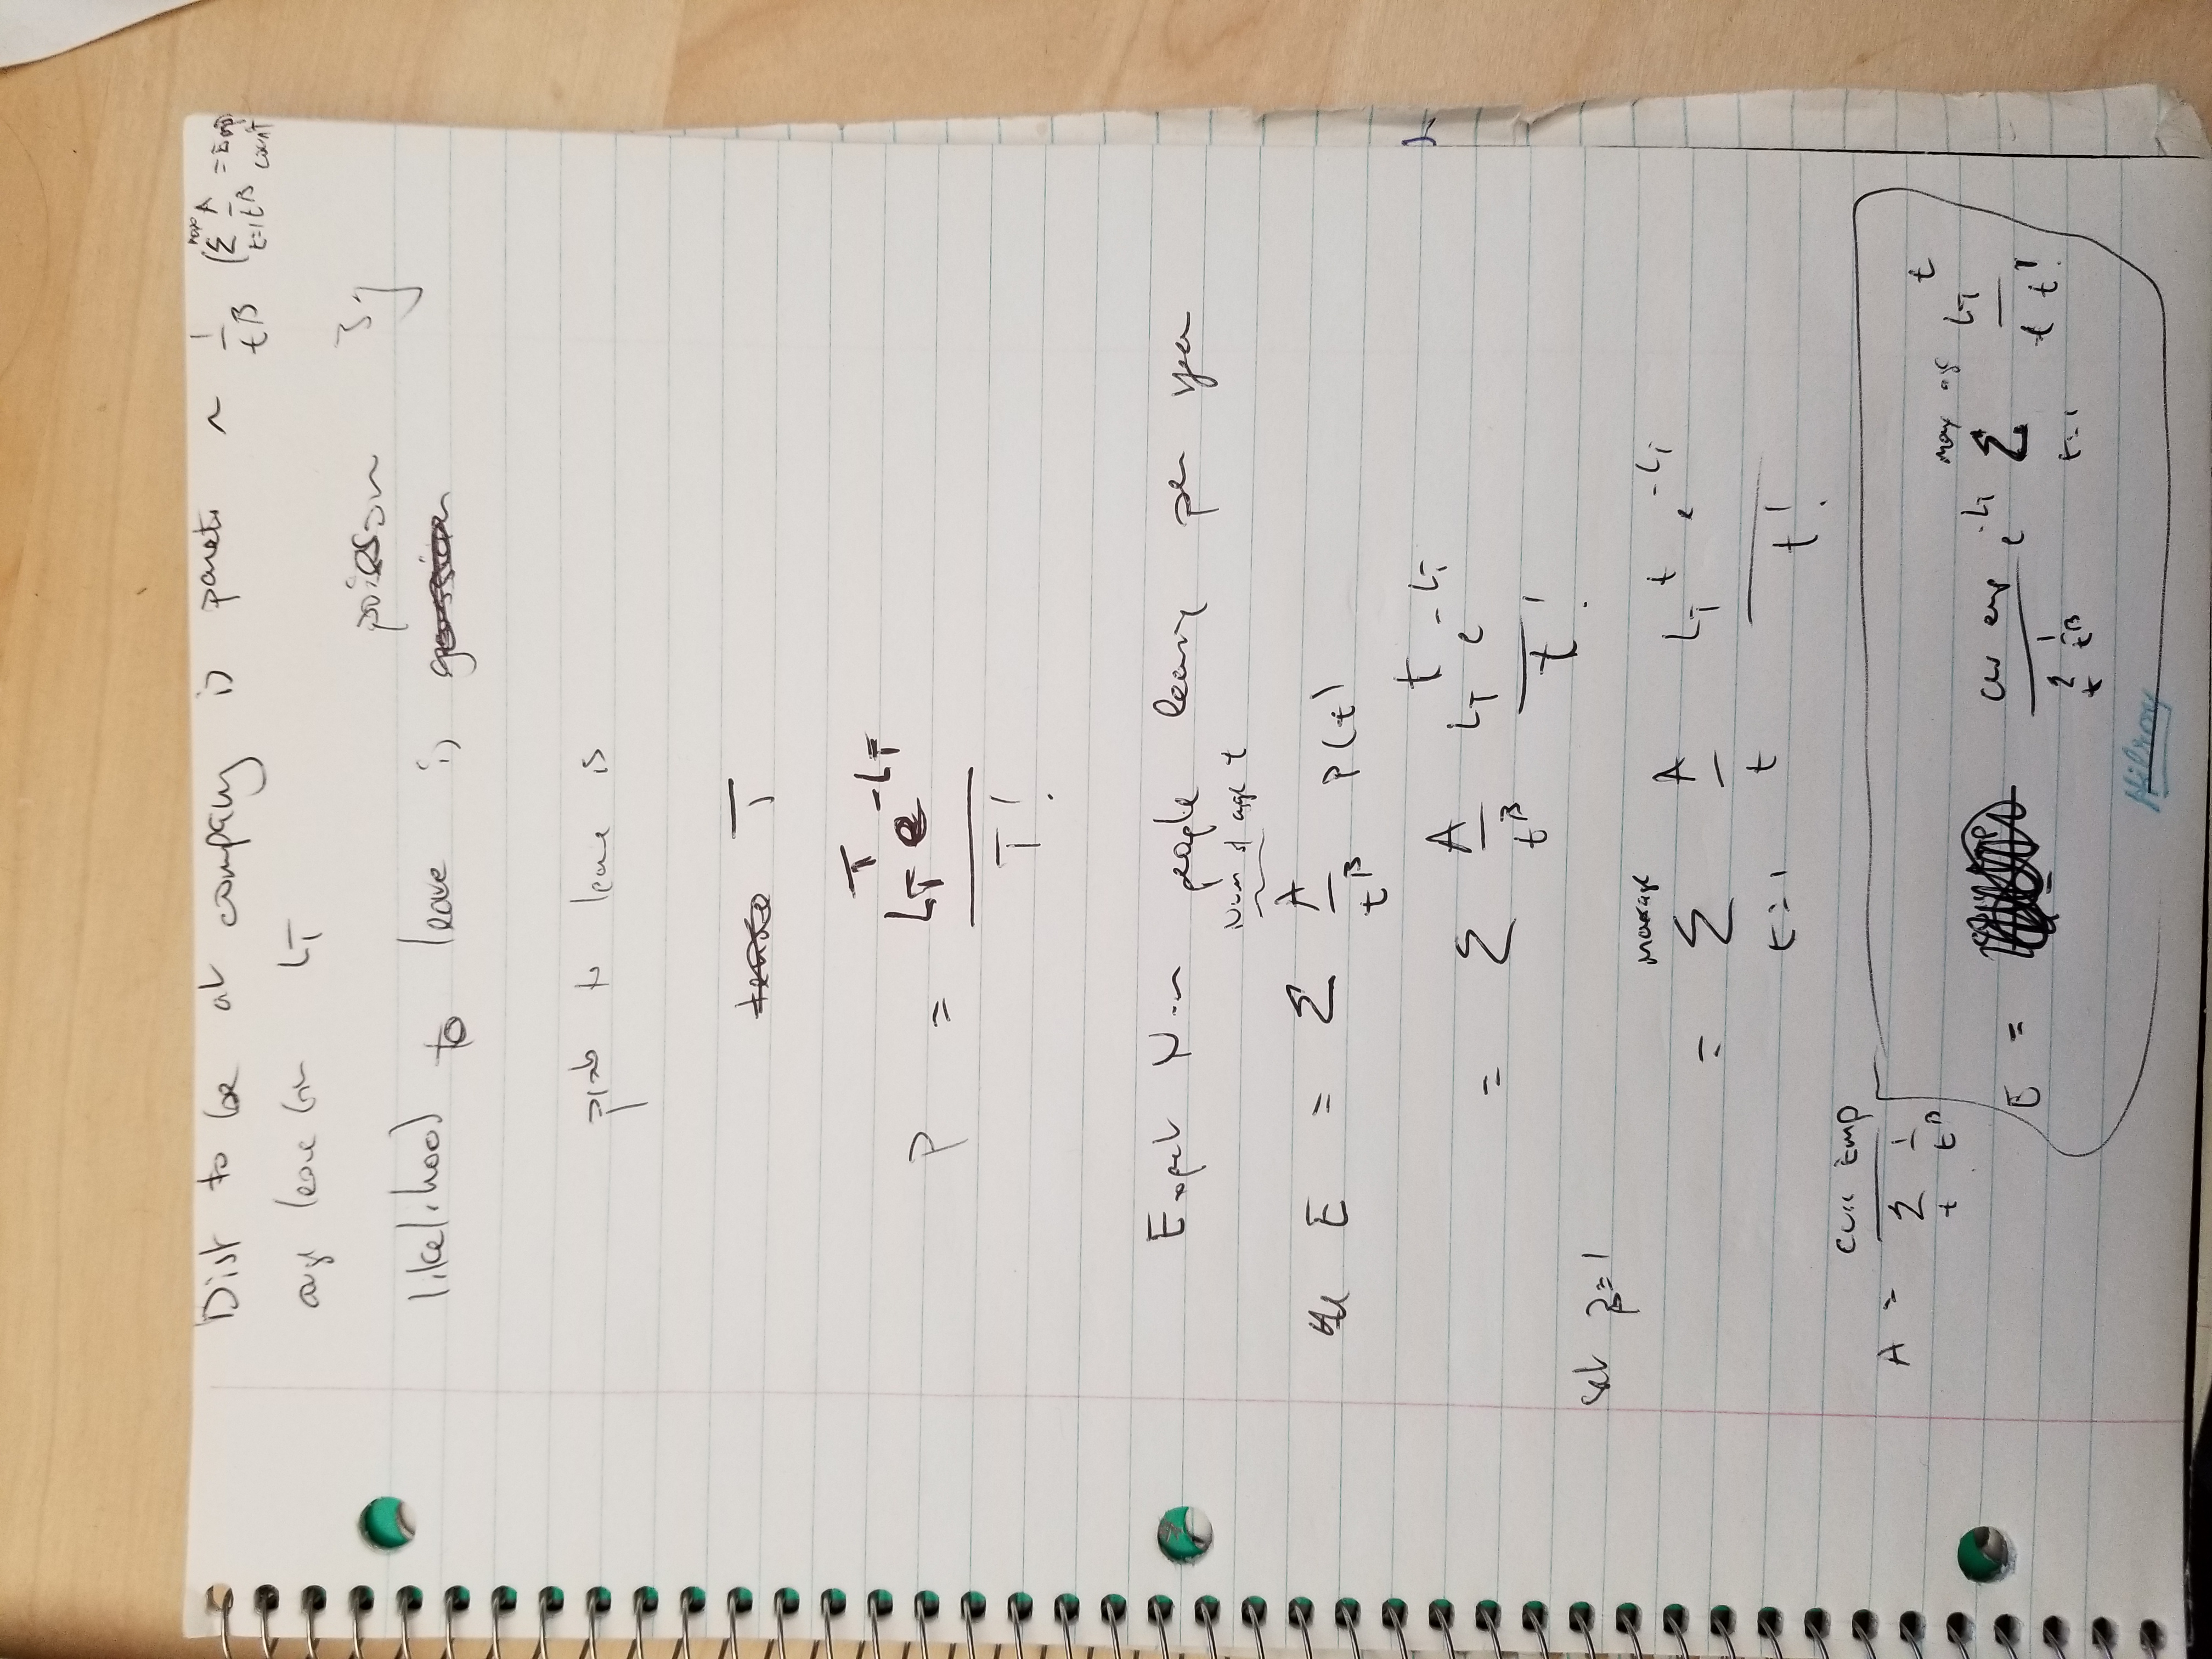 Dist to be at company is pareto ~ 1/t^β (Σ_{t=1}^{max} A/t^β = Emp count
avg leave L_T
poisson 3y
likelihood to leave is
prob to leave is
T
P = L_T^T e^{-L_T} / T!
Expect Num people leaving per year
Num of age t
E = Σ A/t^β P(t)
= Σ A/t^β L_T^t e^{-L_T} / t!
set β=1
= Σ_{t=1}^{max age} A/t L_T^t e^{-L_T} / t!
A = Curr Emp / Σ_t 1/t^β
E = Cur emp / Σ_t 1/t^β e^{-L_T} Σ_{t=1}^{max age} L_T^t / t t!
Hilroy